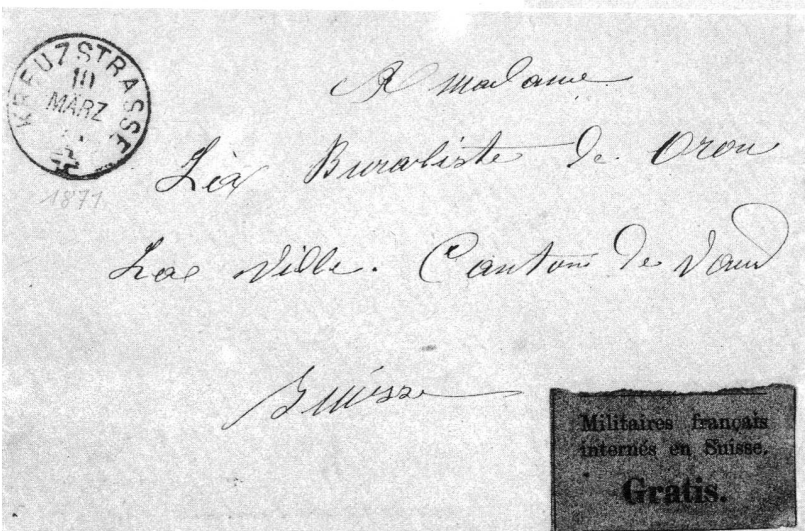 KREUZSTRASSE
10
MÄRZ
1871
A madame
Léa Buraliste de Oron
La ville. Canton de Vaud
Suisse
Militaires français
internés en Suisse.
Gratis.